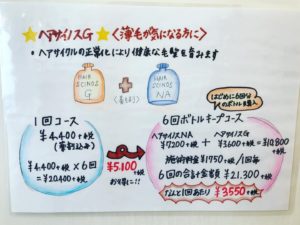 ★ヘアサイスG★〈薄毛が気になる方に〉
・ヘアサイクルの正常化により健康な毛髪を育みます
HAIR SCINOS G
+
HAIR SCINOS NA
はじめに6回分のボトルを購入
1回コース
¥4,400+税
(薬剤込み)
¥4,400+税×6回
=¥20,400+税
¥5,100+税
お得に!!
6回ボトルキープコース
ヘアサイスNA ヘアサイスG
¥7200+税 + ¥3600+税=¥10,800+税
施術料金¥1750+税/1回毎
6回の合計金額 ¥21,300+税
なんと1回あたり ¥3550+税